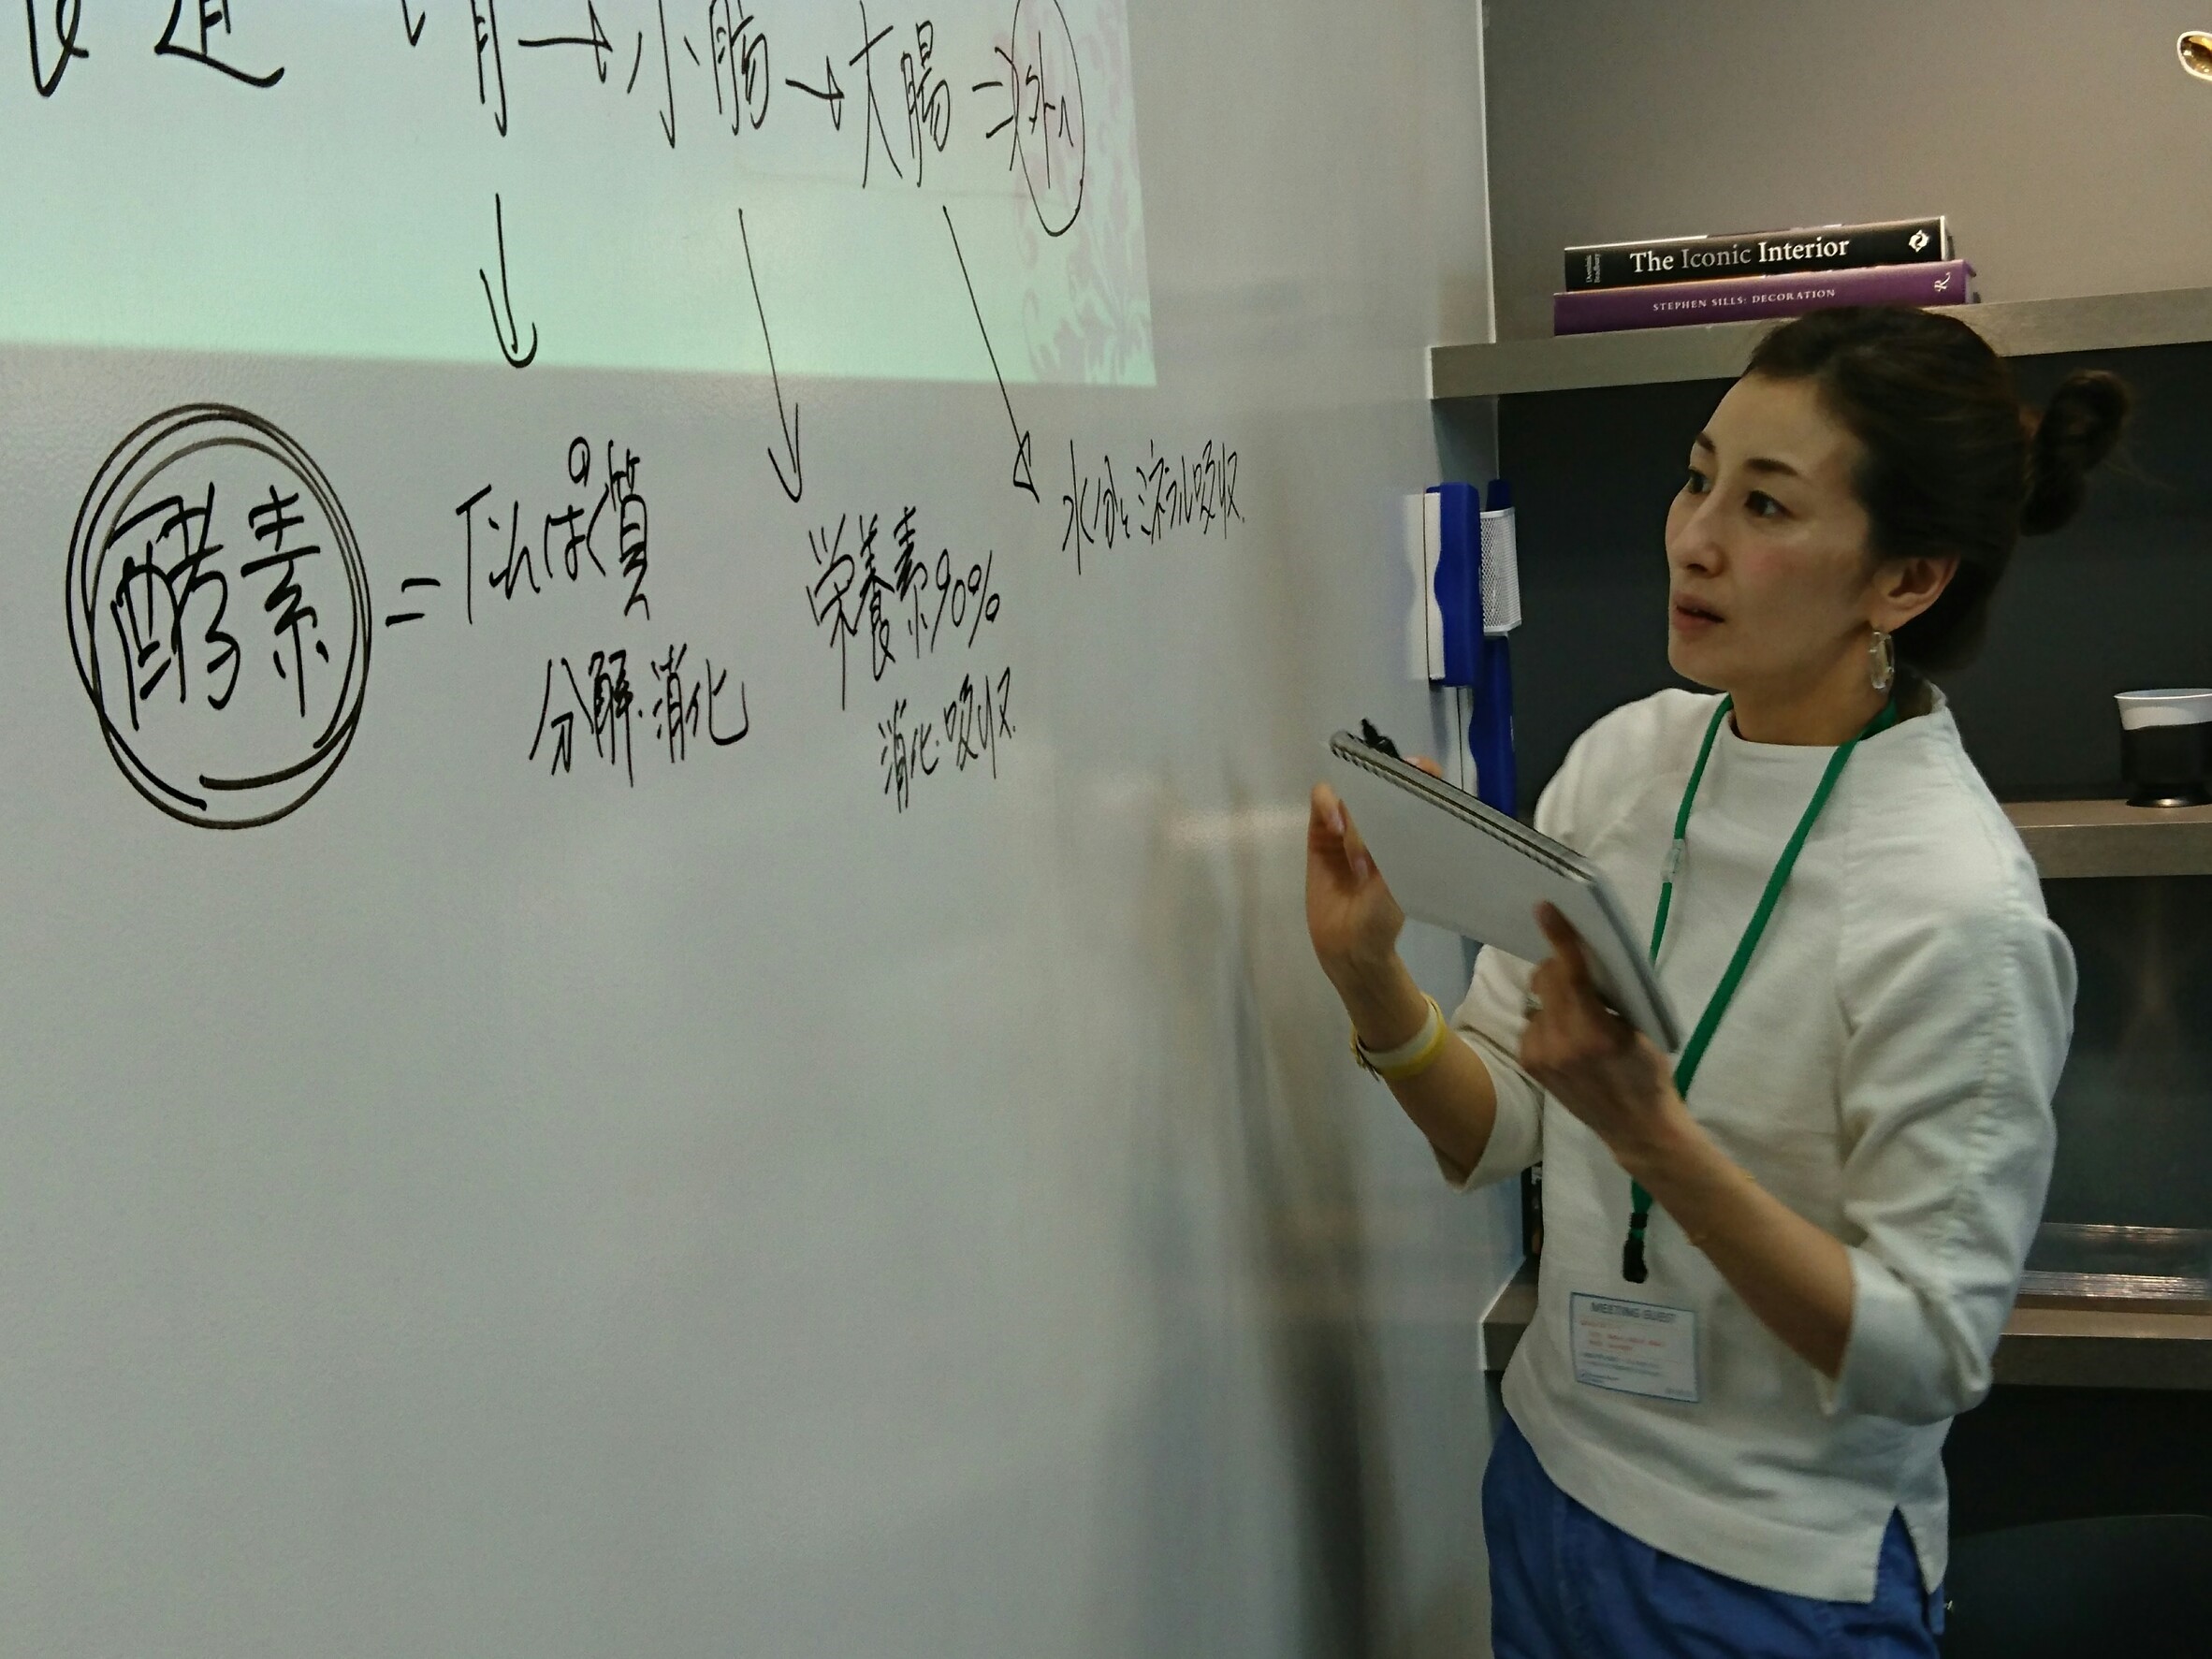 食道 胃→小腸→大腸=(外)
酵素
=たんぱく質
分解・消化
栄養素90%
消化・吸収
水分を 吸収
The Iconic Interior
STEPHEN SILLS: DECORATION
MEETING GUEST